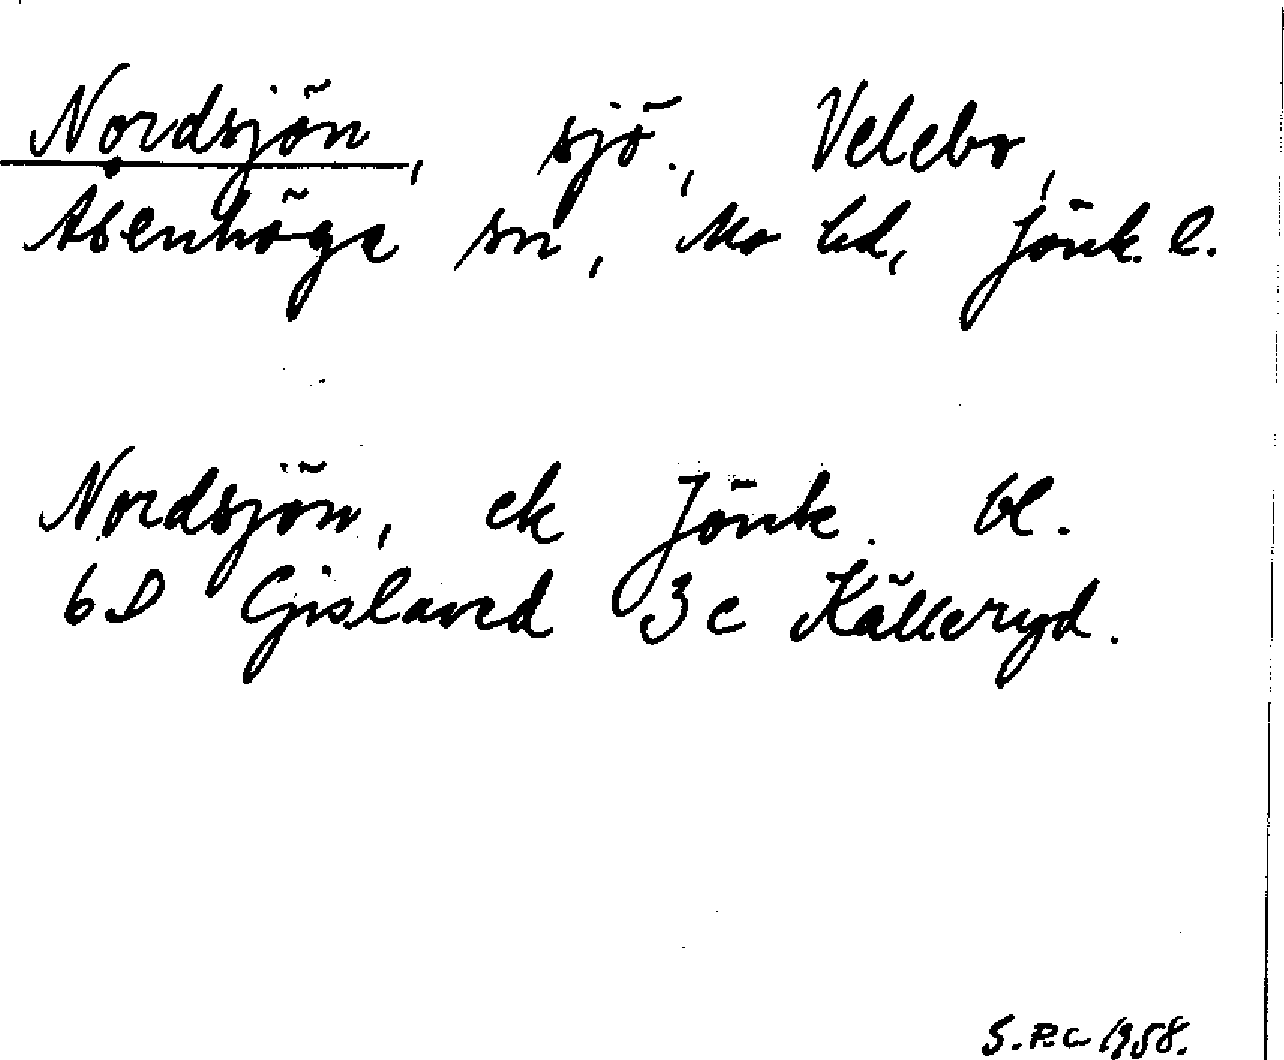 Nordsjön, sjö., Velebo,
Åsenhöga sn, Mo hd, Jönk. l.
Nordsjön, ek Jönk. bl.
6D Gislaved 3c Källeryd.
S.P.C 1958.